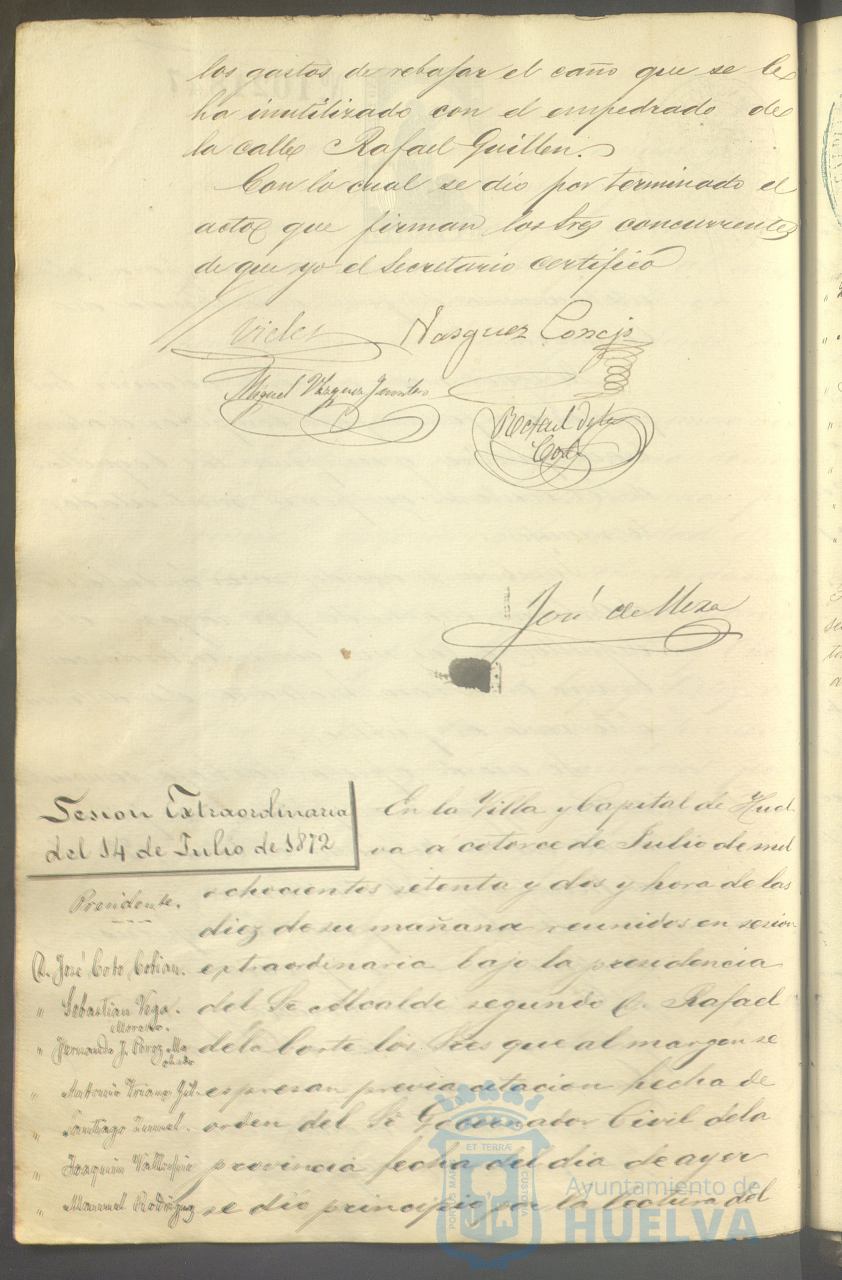 los gastos de rebajar el caño que se le
ha inutilizado con el empedrado de
la calle Rafael Guillen.
Con lo cual se dio por terminado el
acto que firman los Sres concurrentes
de que yo el Secretario certifico
Vasquez Consejo
Miguel Vazquez
Rafael de la
Corte
José de Mesa
Sesion Extraordinaria
del 14 de Julio de 1872
Presidente.
D. José Coto Cobian.
" Sebastian Vega.
Moreno.
" Fernando J. Perez Ma
chado
" Antonio Triano Gil.
" Santiago
" Joaquin
" Manuel Rodriguez
En la Villa y Capital de Huel
va á catorce de Julio de mil
ochocientos setenta y dos y hora de las
diez de su mañana reunidos en sesion
extraordinaria bajo la presidencia
del Sr Alcalde segundo D. Rafael
de la Corte los Sres que al margen se
espresan previa citacion hecha de
orden del Sr Gobernador Civil de la
provincia fecha del dia de ayer
se dio principio por la lectura del
PORTUS MARIS ET TERRÆ CUSTODIA
Ayuntamiento de
HUELVA